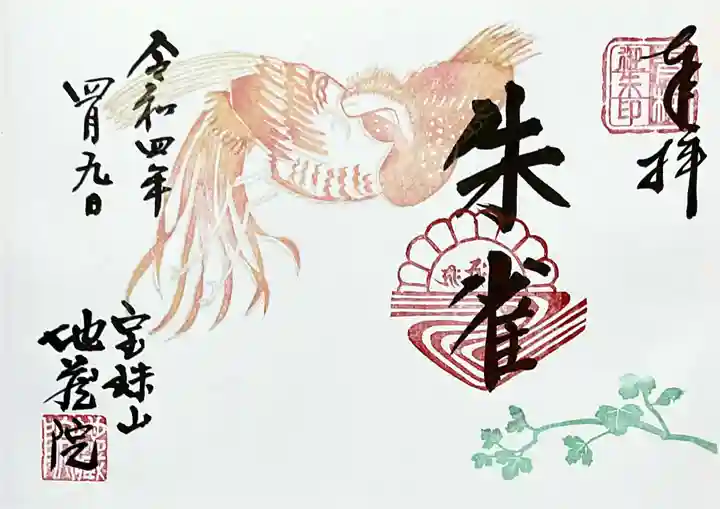 奉拝
朱雀
令和四年
四月九日
宝珠山
地蔵院
御朱印